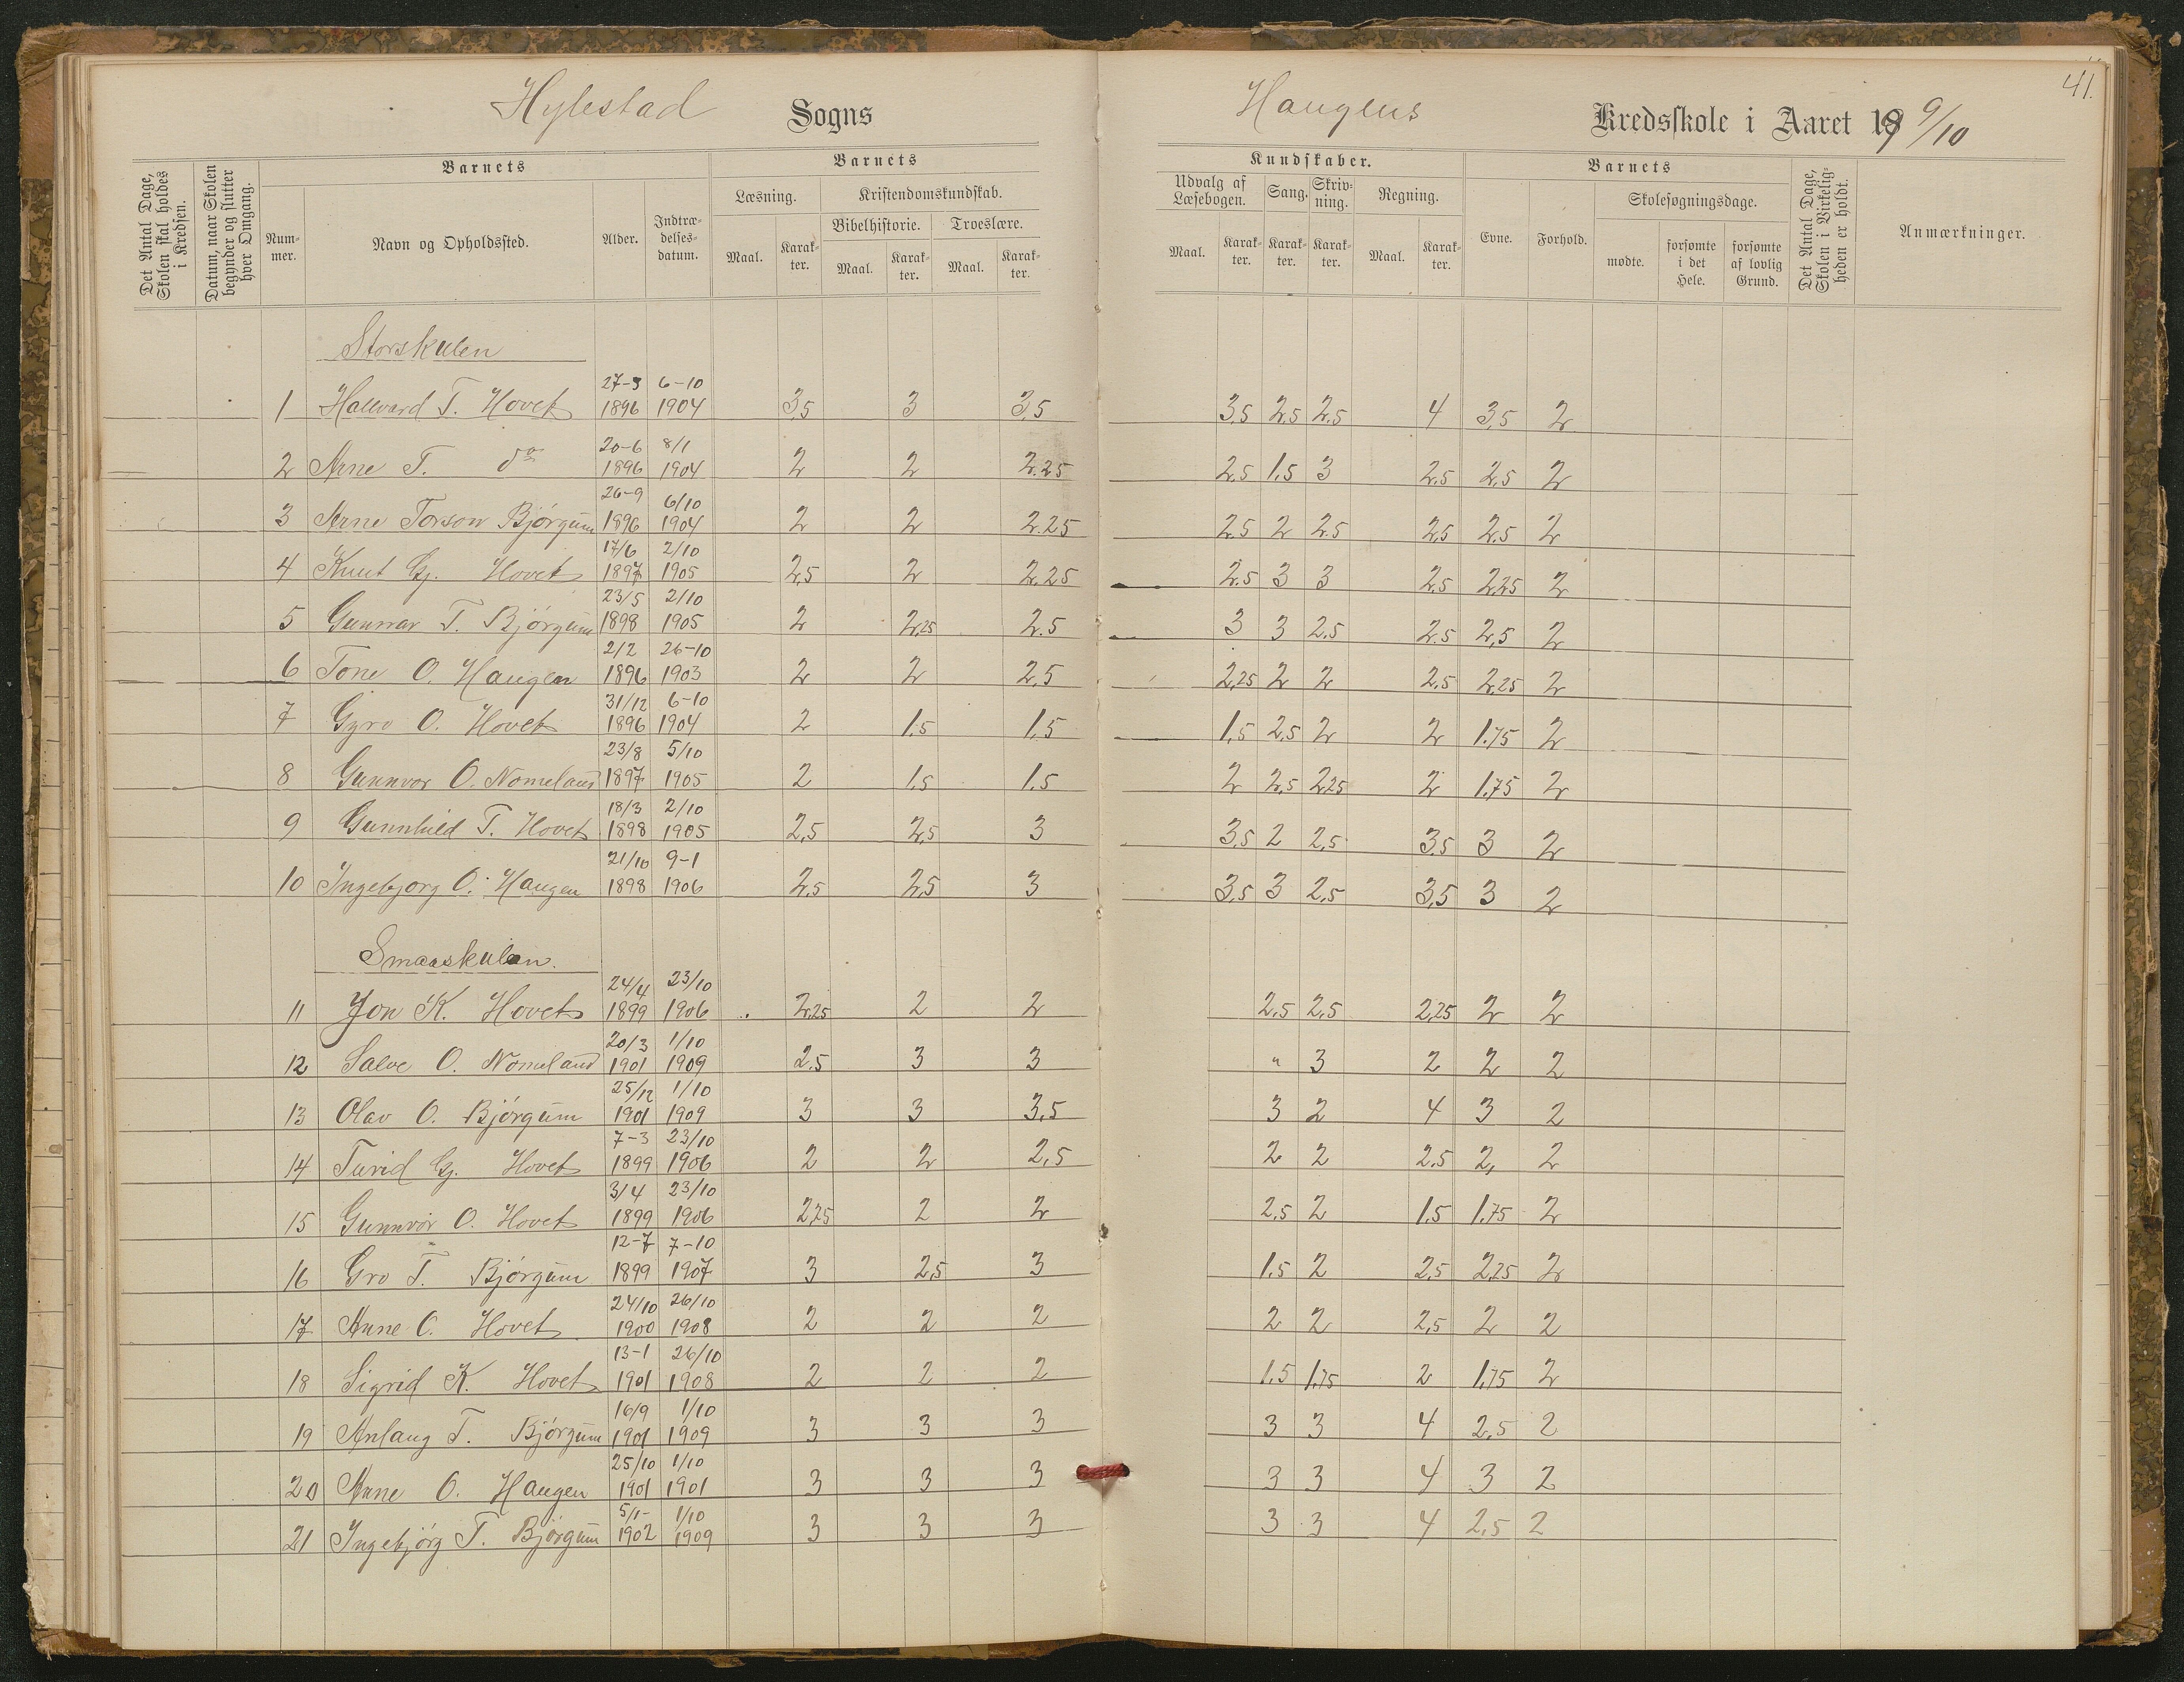 Hylestad Sogns
Haugens Kredsskole i Aaret 19 9/10
41.
Det Antal Dage, Skolen skal holdes i Kredsen.
Datum, naar Skolen begynder og slutter hver Omgang.
Barnets
Nummer.
Navn og Opholdssted.
Alder.
Indtrædelsesdatum.
Barnets
Læsning.
Maal. Karakter.
Kristendomskundskab.
Bibelhistorie. Troeslære.
Maal. Karakter. Maal. Karakter.
Kundskaber.
Udvalg af Læsebogen. Sang. Skrivning. Regning.
Maal. Karakter. Karakter. Karakter. Maal. Karakter.
Barnets
Evne. Forhold.
Skolesøgningsdage.
mødte. forsømte i det Hele. forsømte af lovlig Grund.
Det Antal Dage, Skolen i Virkeligheden er holdt.
Anmærkninger.
Storskulen
1 Hallvard T. Hovet 27-3 1896 6-10 1904 3,5 3 3,5 3,5 2,5 2,5 4 3,5 2
2 Arne T. do 20-6 1896 8/1 1904 2 2 2.25 2,5 1,5 3 2,5 2,5 2
3 Arne Torson Bjórgum 26-9 1896 6/10 1904 2 2 2.25 2.5 2 2.5 2,5 2.5 2
4 Knut Gj. Hovet 17/6 1897 2/10 1905 2,5 2 2.25 2.5 3 3 2.5 2,25 2
5 Gunnar T. Bjórgum 23/5 1898 2/10 1905 2 2,25 2.5 3 3 2.5 2.5 2,5 2
6 Tone O. Haugen 2/2 1896 26-10 1903 2 2 2,5 2,25 2 2 2,5 2,25 2
7 Gyro O. Hovet 31/12 1896 6-10 1904 2 1.5 1,5 1,5 2,5 2 2 1.75 2
8 Gunnvor O. Nomeland 23/8 1897 5/10 1905 2 1.5 1.5 2 2,5 2,25 2 1,75 2
9 Gunnhild T. Hovet 18/3 1898 2/10 1905 2,5 2,5 3 3,5 2 2,5 3,5 3 2
10 Ingebjorg O. Haugen 21/10 1898 9-1 1906 2,5 2,5 3 3,5 3 2,5 3,5 3 2
Smaaskulen.
11 Jon K. Hovet 24/4 1899 23/10 1906 2,25 2 2 2,5 2,5 2,25 2 2
12 Salve O. Nomeland 20/3 1901 1/10 1909 2.5 3 3 " 3 2 2 2
13 Olav O. Bjórgum 25/12 1901 1/10 1909 3 3 3,5 3 2 4 3 2
14 Turid Gj. Hovet 7-3 1899 23/10 1906 2 2 2,5 2 2 2.5 2, 2
15 Gunnvor O. Hovet 3/4 1899 23/10 1906 2,25 2 2 2.5 2 1.5 1,75 2
16 Gro T. Bjórgum 12-7 1899 7-10 1907 3 2,5 3 1.5 2 2,5 2,25 2
17 Anne O. Hovet 24/10 1900 26/10 1908 2 2 2 2 2 2,5 2 2
18 Sigrid K. Hovet 13-1 1901 26/10 1908 2 2 2 1.5 1,75 2 1,75 2
19 Anlaug T. Bjórgum 16/9 1901 1/10 1909 3 3 3 3 3 4 2,5 2
20 Anne O. Haugen 25/10 1901 1/10 1901 3 3 3 3 3 4 3 2
21 Ingebjórg T. Bjórgum 5/1- 1902 1/10 1909 3 3 3 3 3 4 2,5 2